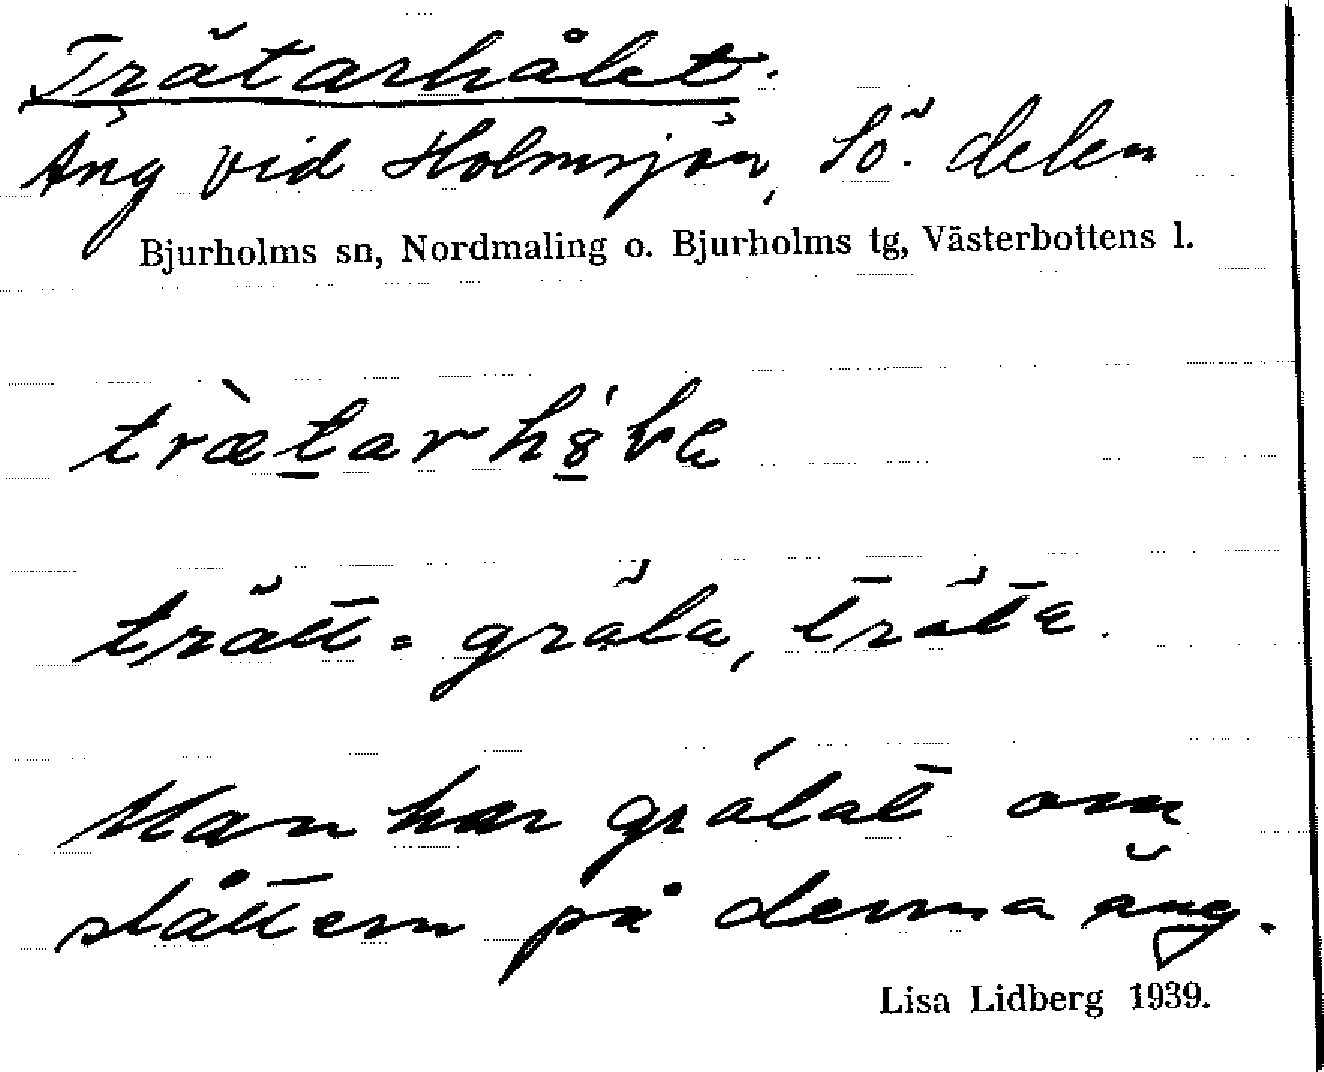 Trätarhålet.
Äng vid Holmsjön, Sö. delen
Bjurholms sn, Nordmaling o. Bjurholms tg, Västerbottens l.
trätt = gräla, träta.
Man har grälat om
slåttern på denna äng.
Lisa Lidberg 1939.